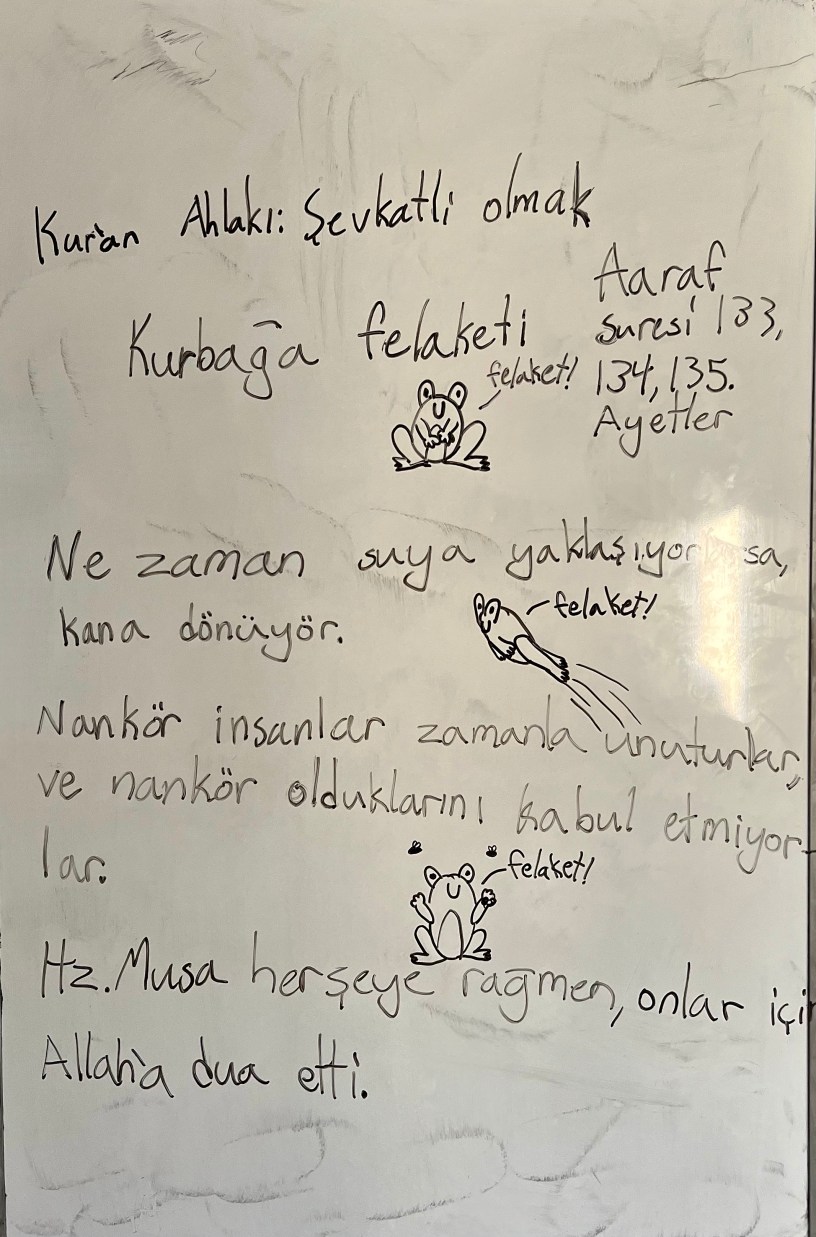 Kur'an Ahlakı: Şevkatli olmak
Kurbağa felaketi
Aaraf
suresi 133,
134, 135.
Ayetler
felaket!
Ne zaman suya yaklaşıyor sa,
kana dönüyör.
felaket!
Nankör insanlar zamanla unuturlar,
ve nankör olduklarını kabul etmiyor-
lar.
felaket!
Hz. Musa herşeye rağmen, onlar için
Allah'a dua etti.